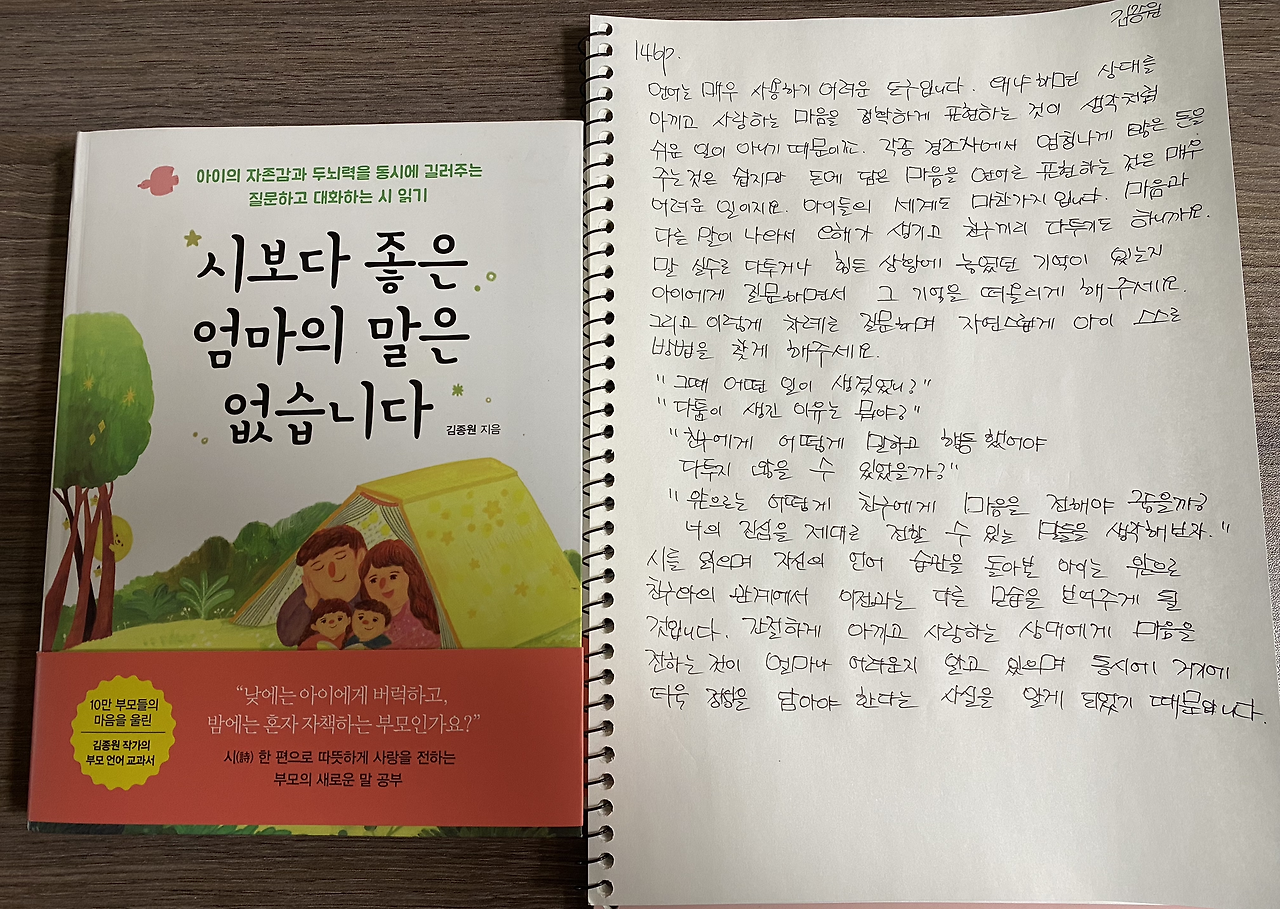 아이의 자존감과 두뇌력을 동시에 길러주는
질문하고 대화하는 시 읽기
시보다 좋은
엄마의 말은
없습니다
김종원 지음
10만 부모들의
마음을 울린
김종원 작가의
부모 언어 교과서
“낮에는 아이에게 버럭하고,
밤에는 혼자 자책하는 부모인가요?”
시(詩) 한 편으로 따뜻하게 사랑을 전하는
부모의 새로운 말 공부
146p.
언어는 매우 사용하기 어려운 도구입니다. 왜냐하면 상대를
아끼고 사랑하는 마음을 정확하게 표현하는 것이 생각처럼
쉬운 일이 아니기 때문이죠. 각종 경조사에서 엄청나게 많은 돈을
주는것은 쉽지만 돈에 담은 마음을 언어로 표현하는 것은 매우
어려운 일이지요. 아이들의 세계도 마찬가지입니다. 마음과
다른 말이 나와서 오해가 생기고 친구끼리 다투기도 하니까요.
말 실수로 다투거나 힘든 상황에 놓였던 기억이 있는지
아이에게 질문하면서 그 기억을 떠올리게 해주세요.
그리고 이렇게 차례로 질문하며 자연스럽게 아이 스스로
방법을 찾게 해주세요.
"그때 어떤 일이 생겼었니?"
"다툼이 생긴 이유는 뭐야?"
"친구에게 어떻게 말하고 행동했어야
다투지 않을 수 있었을까?"
"앞으로는 어떻게 친구에게 마음을 전해야 좋을까?
너의 진심을 제대로 전할 수 있는 말들을 생각해보자."
시를 읽으며 자신의 언어 습관을 돌아본 아이는 앞으로
친구와의 관계에서 이전과는 다른 모습을 보여주게 될
것입니다. 간절하게 아끼고 사랑하는 상대에게 마음을
전하는 것이 얼마나 어려운지 알고 있으며 동시에 거기에
더욱 정성을 담아야 한다는 사실을 알게 되었기 때문입니다.